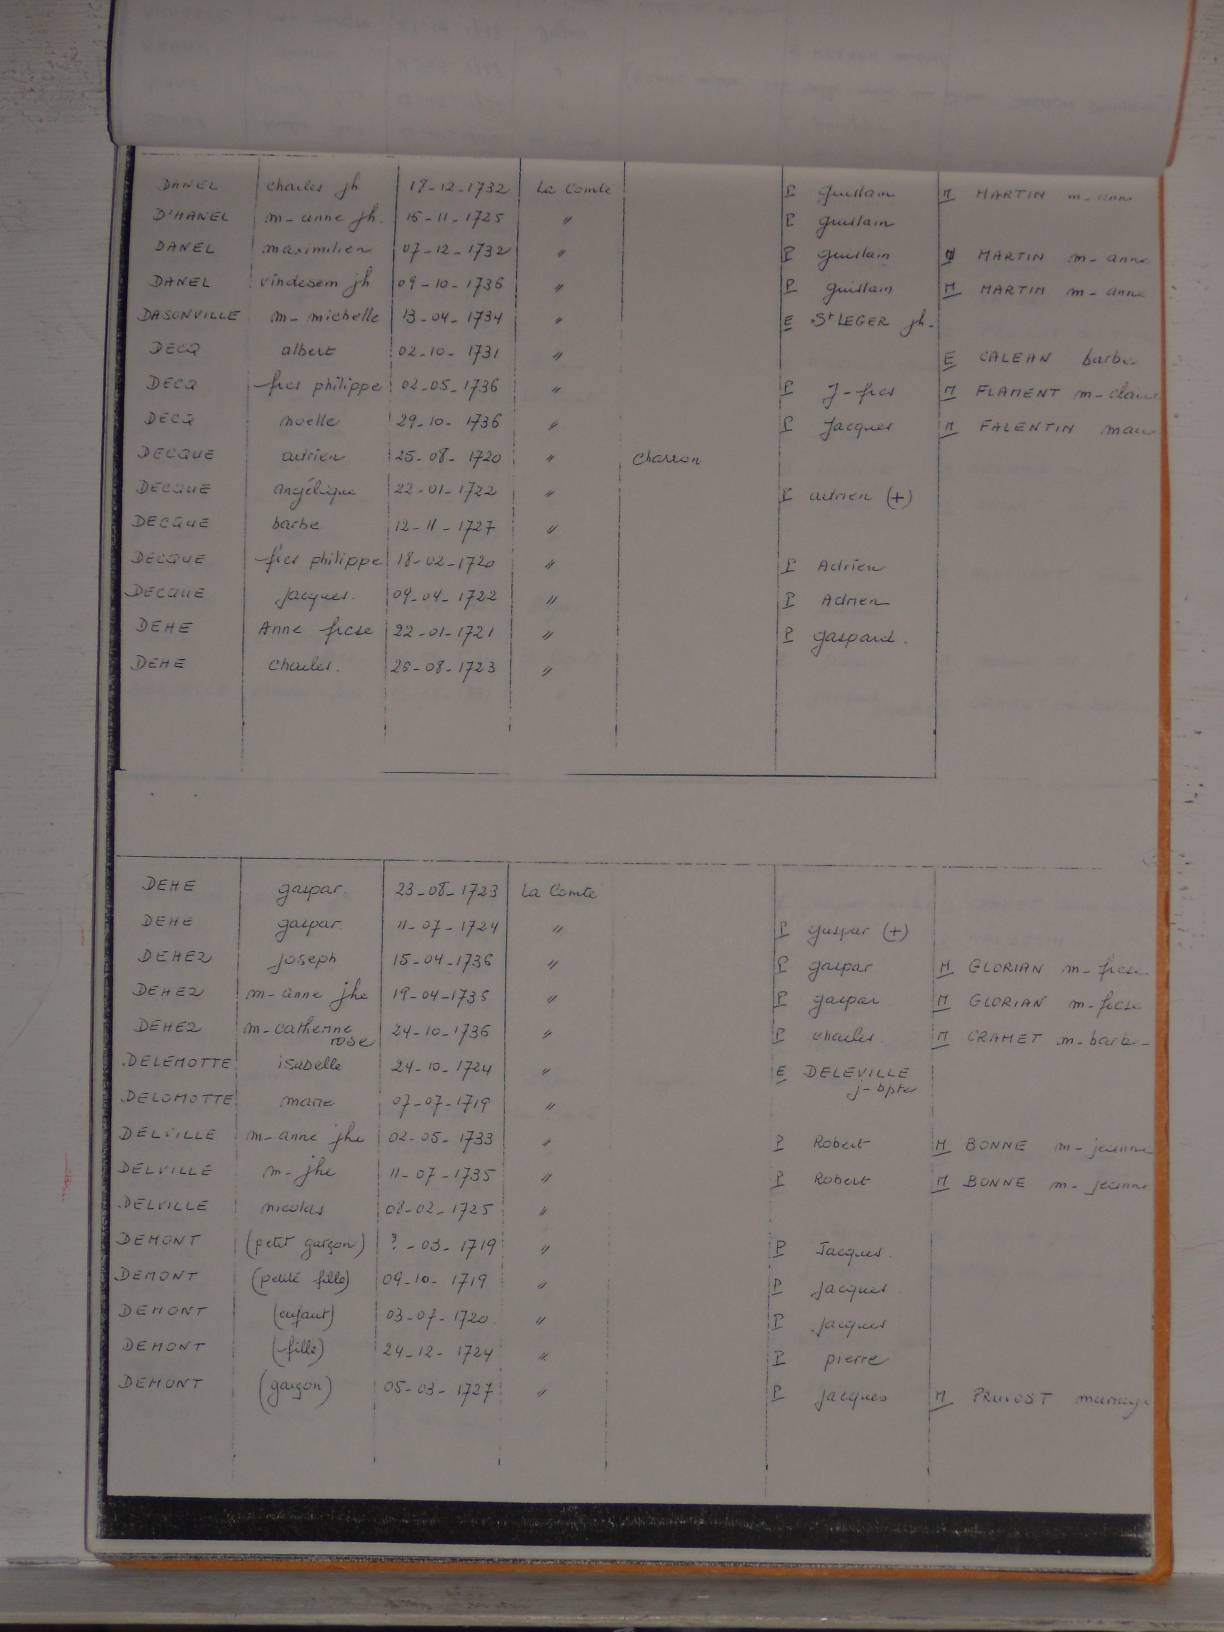 DANEL charles jh 18-12-1732 La Comte P guislain M MARTIN m-anne
D'HANEL m-anne jh. 15-11-1725 " P guislain
DANEL maximilien 07-12-1732 " P guislain M MARTIN m-anne
DANEL vindesem jh 09-10-1736 " P guislain M MARTIN m-anne
DASONVILLE m-michelle 13-04-1734 " E St LEGER jh.
DECQ albert 02-10-1731 " E CALEAN barbe
DECQ frcs philippe 02-05-1736 " P J-frcs M FLAMENT m-claire
DECQ noelle 29-10-1736 " P Jacques M FALENTIN marie
DECQUE adrien 25-08-1720 " charron
DECQUE angélique 22-01-1722 " P adrien (+)
DECQUE barbe 12-11-1727 "
DECQUE frcs philippe 18-02-1720 " P Adrien
DECQUE jacques. 09-04-1722 " P Adrien
DEHE Anne frcse 22-01-1721 " P gaspard.
DEHE charles. 25-08-1723 "
DEHE gaspar. 23-08-1723 La Comte
DEHE gaspar. 11-07-1724 " P gaspar (+)
DEHEZ joseph 15-04-1736 " P gaspar M GLORIAN m-frcse
DEHEZ m-anne jhe 19-04-1735 " P gaspar M GLORIAN m-frcse
DEHEZ m-catherine rose 24-10-1736 " P charles. M CRAMET m-barbe
DELEMOTTE isabelle 24-10-1724 " E DELEVILLE j-bpte
DELOMOTTE marie 07-07-1719 "
DELVILLE m-anne jhe 02-05-1733 " P Robert M BONNE m-jeanne
DELVILLE m-jhe 11-07-1735 " P Robert M BONNE m-jeanne
DELVILLE nicolas 08-02-1725 "
DEMONT (petit garçon) ?-03-1719 " P Jacques.
DEMONT (petite fille) 09-10-1719 " P jacques.
DEMONT (enfant) 03-07-1720 " P jacques
DEMONT (fille) 24-12-1724 " P pierre
DEMONT (garçon) 05-03-1727 " P jacques M PRUVOST